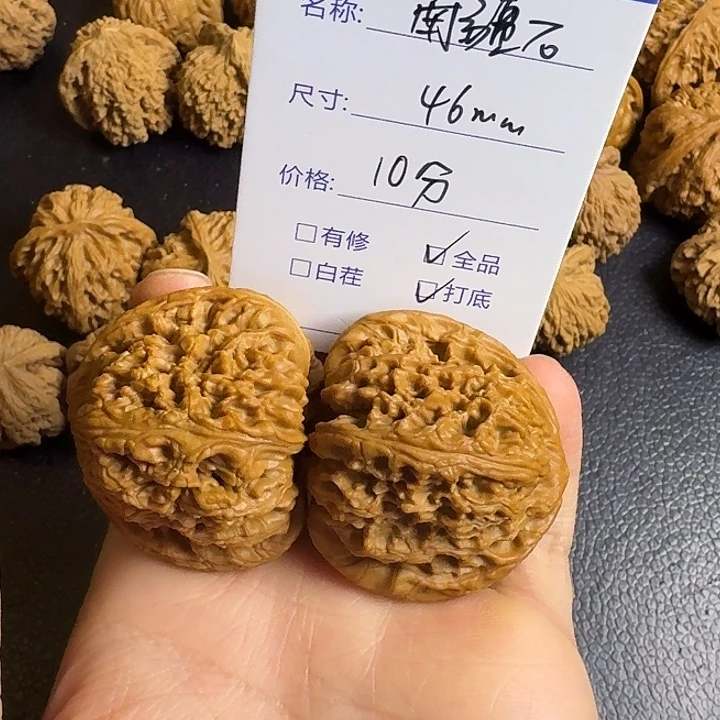 名称: 南疆石
尺寸: 46mm
价格: 10分
□有修 ☑全品
□白茬 ☑打底